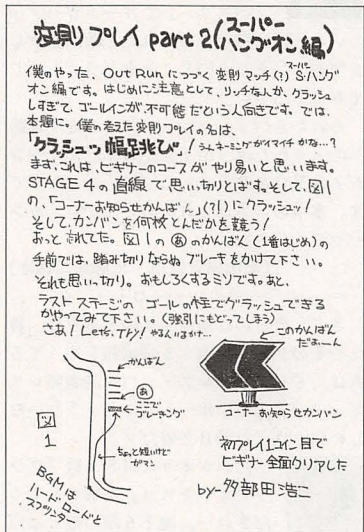 変則プレイ part 2 (スーパーハングオン編)
僕のやった、Out Run につづく変則マッチ(?) S・ハング
スーパー
オン編です。はじめに注意として、リッチな人か、クラッシュ
しすぎて、ゴールインが、不可能だという人向きです。では、
本題に。僕の考えた変則プレイの名は、
「クラッシュッ幅跳び」! うんネーミングがイマイチかな…?
まず、これは、ビギナーのコースがやり易いと思います。
STAGE 4 の直線で思いっ切りとばす。そして、図1
の、「コーナーお知らせかんばん」(?!) にクラッシュッ!
そして、カンバンを何枚とんだかを競う!
おっと忘れてた。図1のあのかんばん(1番はじめ)の
手前では、踏み切りならぬブレーキをかけて下さい。
それも思いっ切り。おもしろくするミソです。あと、
ラストステージのゴールの柱でクラッシュできる
かやってみて下さい。(強引にもどってしまう)
さあ! Let's, Try! やる人いるか…
かんばん
あ
ここでブレーキング
ちょっと短いけどガマン
図1
BGMは
ハードロードと
スプリンター
このかんばん
だよーん
コーナーお知らせカンバン
初プレイ1コイン目で
ビギナー全面クリアした
by-多部田浩二